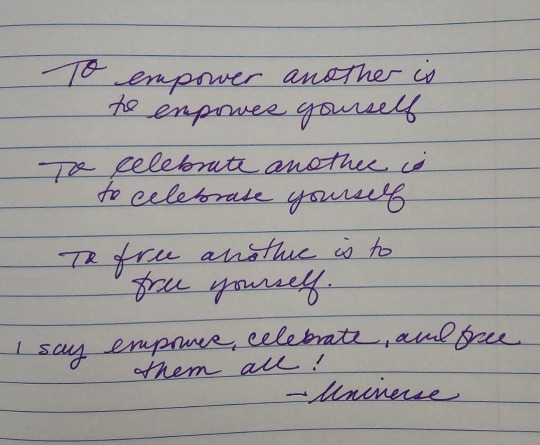 To empower another is
to empower yourself
To celebrate another is
to celebrate yourself
To free another is to
free yourself.
I say empower, celebrate, and free
them all!
- Universe